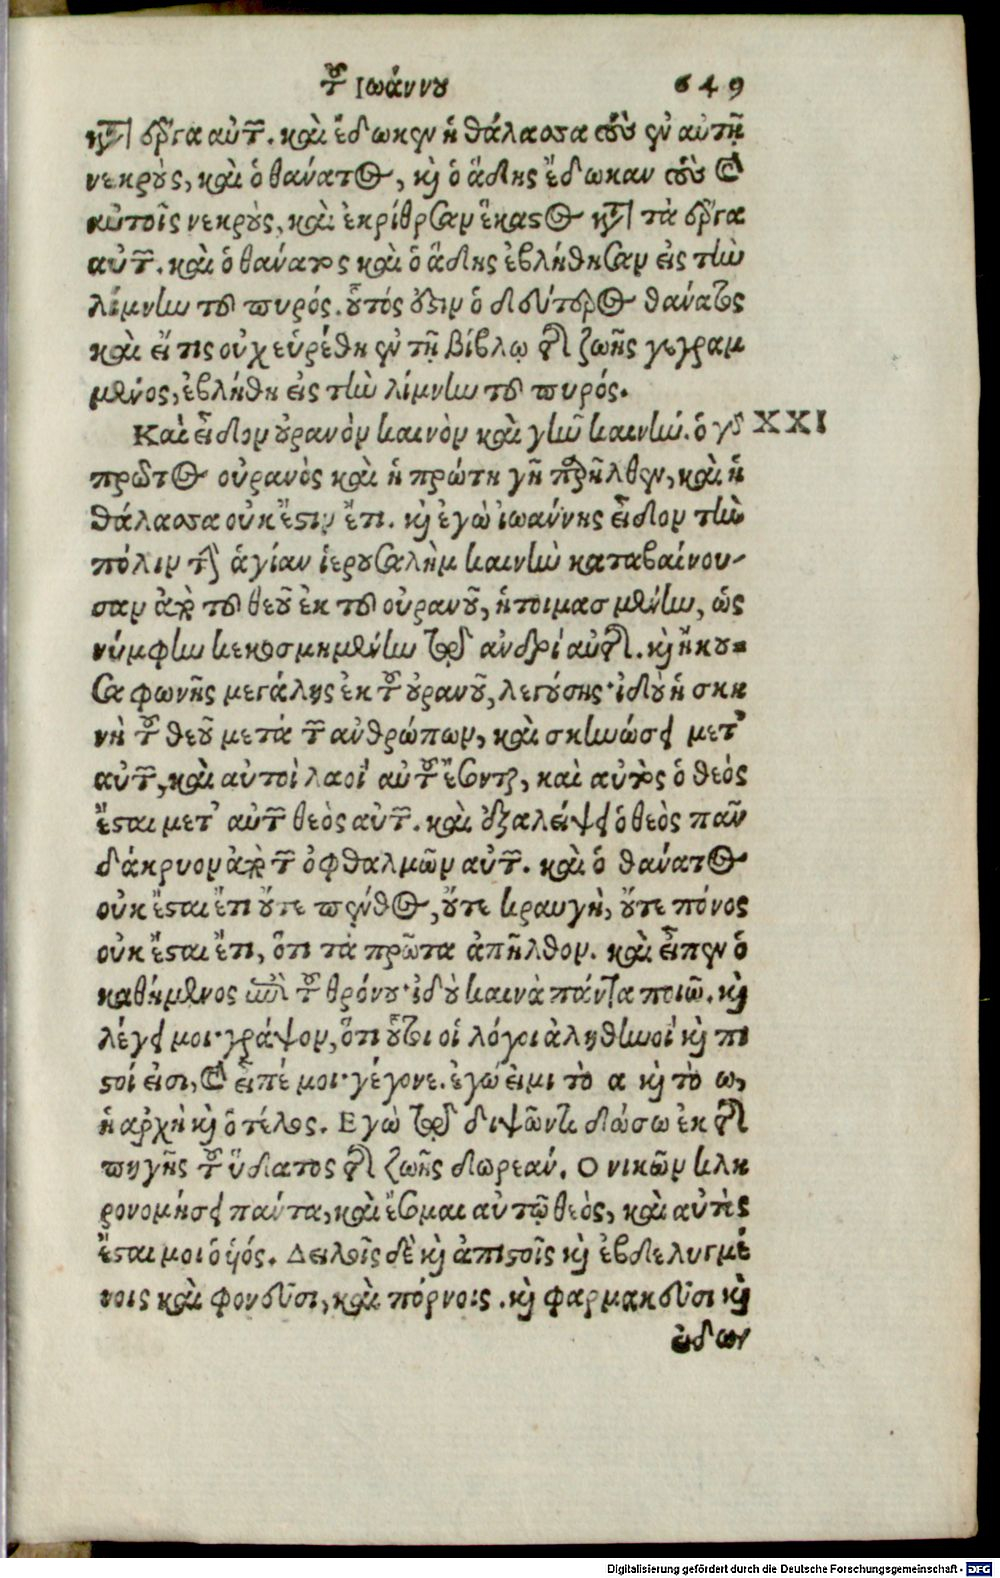 τοῦ Ἰωάννου 649
κατὰ τὰ ἔργα αὐτῶν. καὶ ἔδωκεν ἡ θάλασσα τοὺς ἐν αὐτῇ
νεκροὺς, καὶ ὁ θάνατος, καὶ ὁ ᾅδης ἔδωκαν τοὺς ἐν
αὐτοῖς νεκροὺς, καὶ ἐκρίθησαν ἕκαστος κατὰ τὰ ἔργα
αὐτῶν. καὶ ὁ θάνατος καὶ ὁ ᾅδης ἐβλήθησαν εἰς τὴν
λίμνην τοῦ πυρός. οὗτός ἐστιν ὁ δεύτερος θάνατος
καὶ εἴ τις οὐχ εὑρέθη ἐν τῇ βίβλῳ τῆς ζωῆς γεγραμ
μένος, ἐβλήθη εἰς τὴν λίμνην τοῦ πυρός.
Καὶ εἶδον οὐρανὸν καινὸν καὶ γῆν καινήν. ὁ γὰρ XXI
πρῶτος οὐρανὸς καὶ ἡ πρώτη γῆ παρῆλθεν, καὶ ἡ
θάλασσα οὐκ ἔστιν ἔτι. καὶ ἐγὼ ἰωάννης εἶδον τὴν
πόλιν τὴν ἁγίαν ἱερουσαλὴμ καινὴν καταβαίνου-
σαν ἀπὸ τοῦ θεοῦ ἐκ τοῦ οὐρανοῦ, ἡτοιμασμένην, ὡς
νύμφην κεκοσμημένην τῷ ἀνδρί αὐτῆς. καὶ ἤκου=
σα φωνῆς μεγάλης ἐκ τοῦ οὐρανοῦ, λεγούσης· ἰδοὺ ἡ σκη
νὴ τοῦ θεοῦ μετὰ τῶν ἀνθρώπων, καὶ σκηνώσει μετ'
αὐτῶν, καὶ αὐτοὶ λαοί αὐτοῦ ἔσονται, καὶ αὐτὸς ὁ θεὸς
ἔσται μετ' αὐτῶν θεὸς αὐτῶν. καὶ ἐξαλείψει ὁ θεὸς πᾶν
δάκρυον ἀπὸ τῶν ὀφθαλμῶν αὐτῶν. καὶ ὁ θάνατος
οὐκ ἔσται ἔτι οὔτε πένθος, οὔτε κραυγὴ, οὔτε πόνος
οὐκ ἔσται ἔτι, ὅτι τὰ πρῶτα ἀπῆλθον. καὶ εἶπεν ὁ
καθήμενος ἐπὶ τοῦ θρόνου· ἰδοὺ καινὰ πάντα ποιῶ. καὶ
λέγει μοι· γράψον, ὅτι οὗτοι οἱ λόγοι ἀληθινοί καὶ πι
στοί εἰσι, καὶ εἶπέ μοι· γέγονε. ἐγώ εἰμι τὸ α καὶ τὸ ω,
ἡ ἀρχὴ καὶ ὁ τέλος. Ἐγὼ τῷ διψῶντι δώσω ἐκ τῆς
πηγῆς τοῦ ὕδατος τῆς ζωῆς δωρεάν. Ὁ νικῶν κλη
ρονομήσει πάντα, καὶ ἔσομαι αὐτῷ θεὸς, καὶ αὐτὸς
ἔσται μοι ὁ υἱός. Δειλοῖς δὲ καὶ ἀπίστοις καὶ ἐβδελυγμέ
νοις καὶ φονεῦσι, καὶ πόρνοις. καὶ φαρμακεῦσι καὶ
εἰδων
Digitalisierung gefördert durch die Deutsche Forschungsgemeinschaft - DFG